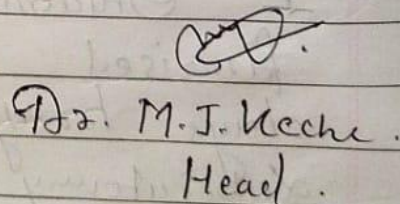 Dr. M.J. Keche.
Head.